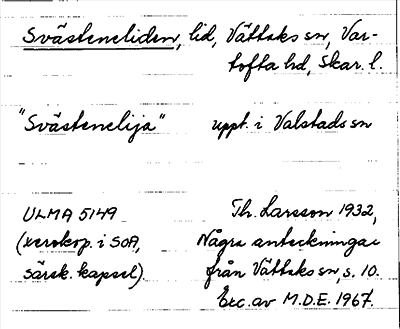 Svästeneliden, lid, Vättaks sn, Var-
tofta hd, Skar. l.
"Svästenelija" uppt. i Valstads sn
ULMA 5149 Th. Larsson 1932,
(xerokop. i SOA, Några anteckningar
särsk. kapsel). från Vättaks sn, s. 10.
Exc. av M.D.E. 1967.